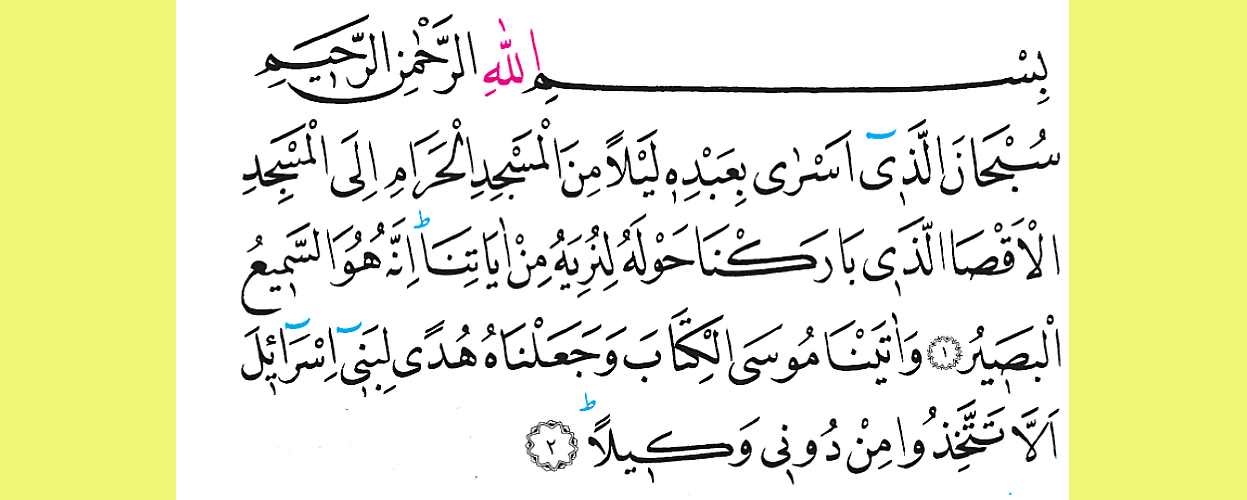 بِسْمِ اللّٰهِ الرَّحْمٰنِ الرَّحٖيمِ
سُبْحَانَ الَّذٖٓى اَسْرٰى بِعَبْدِهٖ لَيْلًا مِنَ الْمَسْجِدِ الْحَرَامِ اِلَى الْمَسْجِدِ
الْاَقْصَا الَّذٖى بَارَكْنَا حَوْلَهُ لِنُرِيَهُ مِنْ اٰيَاتِنَاؕ اِنَّهُ هُوَ السَّمٖيعُ
الْبَصٖيرُ ١ وَاٰتَيْنَا مُوسَى الْكِتَابَ وَجَعَلْنَاهُ هُدًى لِبَنٖٓى اِسْرَٓائٖلَ
اَلَّا تَتَّخِذُوا مِنْ دُونٖى وَكٖيلًاؕ ٢